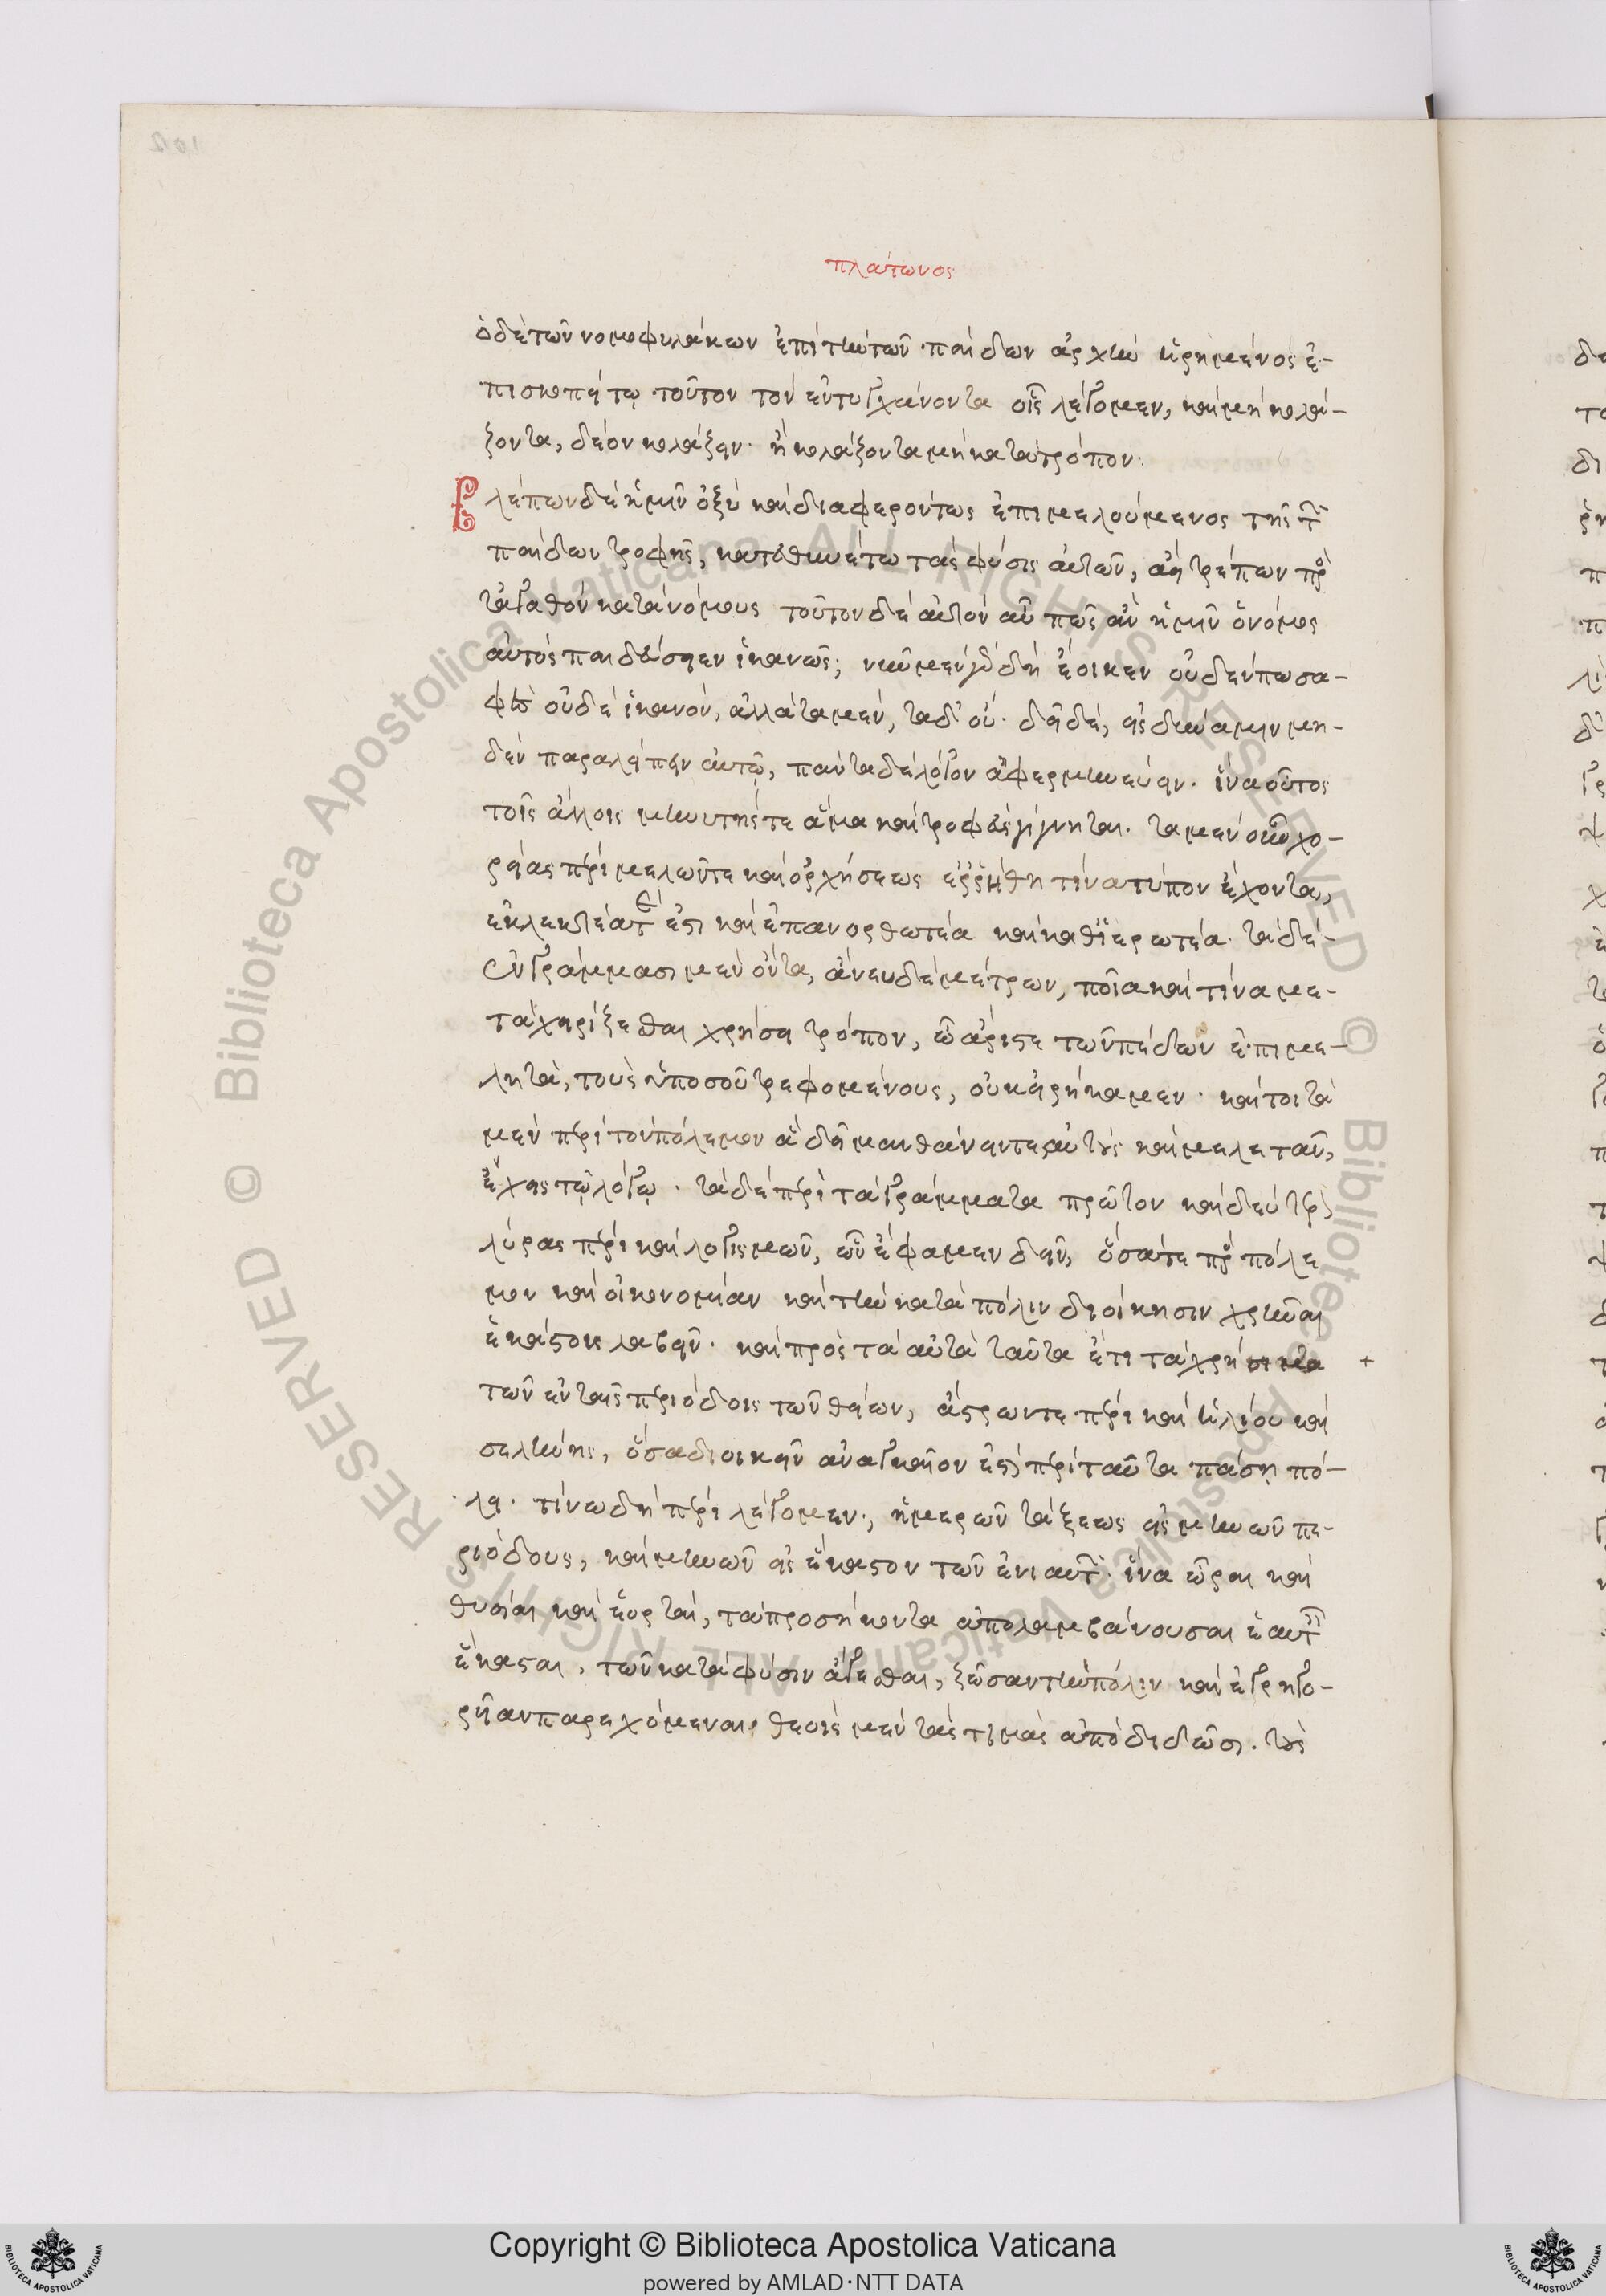 πλάτωνος
ὁ δὲ τῶν νομοφυλάκων ἐπὶ τὴν τῶν παίδων ἀρχὴν ᾑρημένος ἐ-
πισκοπείτω τοῦτον τὸν ἐντυγχάνοντα οἷς λέγομεν, καὶ μὴ κολά-
ζοντα, δέον κολάζειν. ἢ κολάζοντα μὴ κατὰ τρόπον.
βλέπων δὲ ἡμῖν ὀξὺ καὶ διαφερόντως ἐπιμελούμενος τῆς τῶν
παίδων τροφῆς, κατευθυνέτω τὰς φύσεις αὐτῶν, ἀεὶ τρέπων πρὸς
τἀγαθὸν κατὰ νόμους τοῦτον δὲ αὐτὸν αὖ πῶς ἂν ἡμῖν ὁ νόμος
αὐτὸς παιδεύσειεν ἱκανῶς; νῦν μὲν γὰρ δὴ εἴρηκεν οὐδέν πω σα-
φὲς οὐδὲ ἱκανόν, ἀλλὰ τὰ μέν, τὰ δ' οὔ. δεῖ δέ, εἰς δύναμιν μη-
δὲν παραλείπειν αὐτῷ, πάντα δὲ λόγον ἀφερμηνεύειν. ἵνα οὗτος
τοῖς ἄλλοις μηνυτής τε ἅμα καὶ τροφεὺς γίγνηται. τὰ μὲν οὖν χο-
ρείας πέρι μελῶν τε καὶ ὀρχήσεως ἐῤῥήθη τίνα τύπον ἔχοντα,
ἐκλεκτέα τέ ἐστι καὶ ἐπανορθωτέα καὶ καθϊερωτέα. τὰ δὲ ἐν
συγγράμμασι μὲν ὄντα, ἄνευ δὲ μέτρων, ποῖα καὶ τίνα με-
ταχειρίζεσθαι χρή σοι τρόπον, ὦ ἄριστε τῶν παίδων ἐπιμε-
λητὰ, τοὺς ὑπὸ σοῦ τρεφομένους, οὐκ εἰρήκαμεν. καί τοι τὰ
μὲν περὶ τὸν πόλεμον ἃ δεῖ μανθάνειν τε αὐτοὺς καὶ μελετᾶν,
ἔχεις τῷ λόγῳ. τὰ δὲ περὶ τὰ γράμματα πρῶτον καὶ δεύτερον
λύρας πέρι καὶ λογισμῶν, ὧν ἔφαμεν δεῖν, ὅσα τε πρὸς πόλε
μον καὶ οἰκονομίαν καὶ τὴν κατὰ πόλιν διοίκησιν χρῆναι
ἑκάστους λαβεῖν. καὶ πρὸς τὰ αὐτὰ ταῦτα ἔτι τὰ χρήσιμα +
τῶν ἐν ταῖς περιόδοις τῶν θείων, ἄστρων τε πέρι καὶ ἡλίου καὶ
σελήνης, ὅσα διοικεῖν ἀναγκαῖον ἐστὶ περὶ ταῦτα πάσῃ πό-
λει. τίνων δὴ πέρι λέγομεν; ἡμερῶν τάξεως εἰς μηνῶν πε-
ριόδους, καὶ μηνῶν εἰς ἕκαστον τῶν ἐνιαυτῶν. ἵνα ὧραι καὶ
θυσίαι καὶ ἑορταὶ, τὰ προσήκοντα ἀπολαμβάνουσαι ἑαυταῖς
ἕκασται, τῶν κατὰ φύσιν ἄγεσθαι, ζῶσαν τὴν πόλιν καὶ ἐγρηγο-
ρυῖαν παρεχόμεναι, θεοῖς μὲν τὰς τιμὰς ἀποδιδῶσι. τοὺς
Copyright © Biblioteca Apostolica Vaticana
powered by AMLAD·NTT DATA